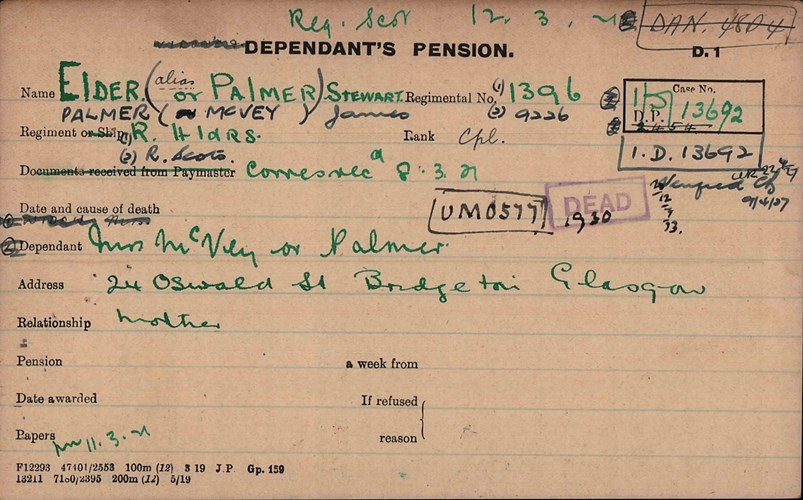 Reg. Scot 12. 3. 21 DAN. 480 41
DEPENDANT'S PENSION. D. 1
Name ELDER. (alias or PALMER) STEWART. Regimental No. (1) 1396
PALMER (or MCVEY) James (2) 9226
Case No.
1/5 D.P. 13692
2454
Regiment or Ship (1) R. Hldrs. Rank Cpl.
(2) R. Scots.
1. D. 13692
Documents received from Paymaster Corresrec d 8. 3. 21
9/4/27
Date and cause of death UM0577 1930 DEAD
12
9
33.
(2) Dependant Mrs McVey or Palmer.
Address 24 Oswald St Bridgeton Glasgow
Relationship Mother
Pension a week from
Date awarded If refused
Papers 11. 3. 21 reason
F12293 47401/2553 100m (12) 3 19 J.P. Gp. 159
13211 7180/2395 200m (12) 5/19